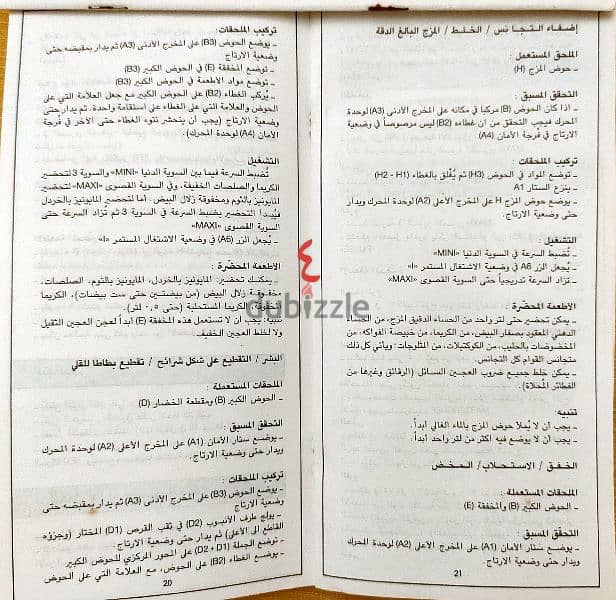 إضفاء التجانس / الخلط / المزج البالغ الدقة
الملحق المستعمل :
ـ حوض المزج (H)
التحقق المسبق :
ـ اذا كان الحوض (B) مركبا في مكانه على المخرج الأدنى (A3) لوحدة
المحرك فيجب التحقق من ان غطاءه (B2) ليس مرصوصاً في وضعية
الارتاج في فُرجة الأمان (A4)
تركيب الملحقات :
ـ توضع المواد في الحوض (H3) ثم يُغلق بالغطاء (H2 - H1)
ـ ينزع الستار A1
ـ يوضع حوض المزج H على المخرج الأعلى (A2) لوحدة المحرك ويدار
حتى وضعية الارتاج.
التشغيل :
ـ تُضبط السرعة في السوية الدنيا «MINI»
ـ يُجعل الزر A6 في وضعية الاشتغال المستمر «I»
ـ تزاد السرعة تدريجياً حتى السوية القصوى «MAXI»
الأطعمة المحضرة :
ـ يمكن تحضير حتى لتر واحد من الحساء الدقيق المزج، من الحساء
الدهني المعقود بصفار البيض، من الكريما، من خبيصة الفواكه، من
المخضوضات بالحليب، من الكوكتيلات، من المثلوجات؛ ويأتي كل ذلك
متجانس القوام كل التجانس.
ـ يمكن خلط جميع ضروب العجين السائل (الرقائق وغيرها من
الفطائر المُحلاة).
تنبيه:
ـ يجب أن لا يُملأ حوض المزج بالماء الغالي أبداً.
ـ يجب أن لا يوضع فيه اكثر من لتر واحد أبداً.
الخفق / الاستحلاب / المخض
الملحقات المستعملة :
ـ الحوض الكبير (B) والمخفقة (E)
التحقّق المسبق :
ـ يوضع ستار الأمان (A1) على المخرج الأعلى (A2) لوحدة المحرك
ويدار حتى وضعية الارتاج.
21
تركيب الملحقات:
ـ يوضع الحوض (B3) على المخرج الأدنى (A3) ثم يدار بمقبضه حتى
وضعية الارتاج
ـ توضع المخفقة (E) في الحوض الكبير (B3)
ـ توضع مواد الأطعمة في الحوض الكبير (B3)
ـ يُركب الغطاء (B2) على الحوض الكبير مع جعل العلامة التي على
الحوض والعلامة التي على الغطاء على استقامة واحدة. ثم يدار حتى
وضعية الارتاج (يجب أن ينحشر نتوء الغطاء حتى الآخر في فُرجة
الأمان (A4) لوحدة المحرك).
التشغيل
ـ تُضبط السرعة فيما بين السوية الدنيا «MINI» والسوية 3 لتحضير
الكريما والصلصات الخفيفة، وفي السوية القصوى «MAXI» لتحضير
المايونيز بالثوم ومخفوقة زلال البيض. أما لتحضير المايونيز بالخردل
فيُبدأ التحضير بضبط السرعة في السوية 3 ثم تُزاد السرعة حتى
السوية القصوى «MAXI»
ـ يُجعل الزر (A6) في وضعية الاشتغال المستمر «I»
الأطعمة المحضّرة :
ـ يمكنك تحضير: المايونيز بالخردل، المايونيز بالثوم، الصلصات،
مخفوقة زلال البيض (من بيضتين حتى ست بيضات)، الكريما
المخفوقة، الكريما المستحلبة (حتى ٠,٥ لتر)
تنبيه: يجب أن لا تستعمل هذه المخفقة (E) أبداً لعجن العجين الثقيل
ولا لخلط العجين الخفيف.
٤
dubizzle
النشر / التقطيع على شكل شرائح / تقطيع بطاطا للقلي
الملحقات المستعملة :
ـ الحوض الكبير (B) ومقطعة الخضار (D)
التحقق المسبق :
ـ يوضع ستار الأمان (A1) على المخرج الأعلى (A2) لوحدة المحرك
ويدار حتى وضعية الارتاج.
تركيب الملحقات :
ـ يوضع الحوض (B3) على المخرج الأدنى (A3) ثم يدار بمقبضه حتى
وضعية الارتاج
ـ يولج طرف الأنبوب (D2) في ثقب القرص (D1) المختار (وجزؤه
القاطع الى الأعلى) ثم يدار حتى وضعية الارتاج.
ـ توضع الجملة (D2 + D1) على المحور المركزي للحوض الكبير
ـ يوضع الغطاء (B2) على الحوض، مع العلامة التي على الحوض
20